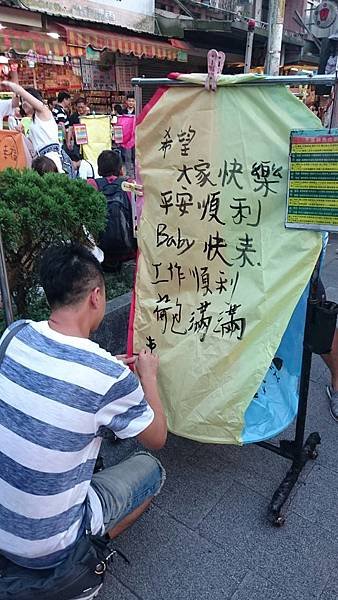 希望
大家快樂
平安順利
Baby快來
工作順利
荷包滿滿